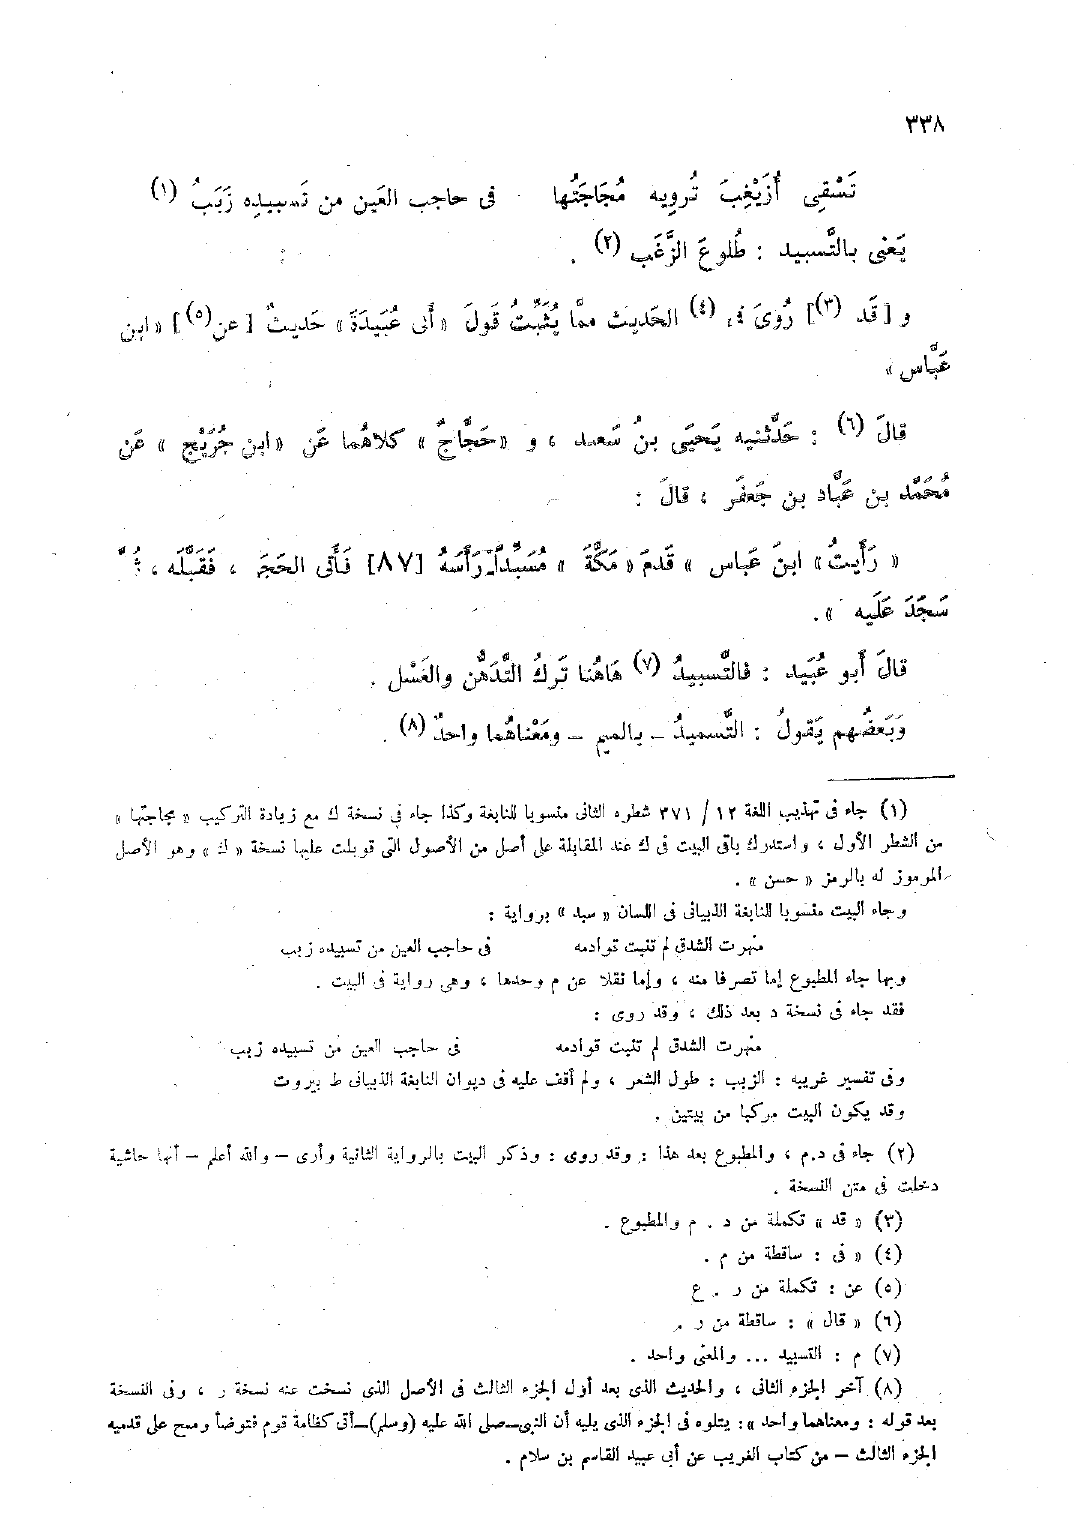 ٣٣٨
تَسْقِى أُزَيْغِبَ تُرويه مُجَاجَتُها فى حاجب العَين من تَسبيدِه زَبَبُ (١)
يَعنى بالتَّسبيد : طُلوعَ الزَّغَب (٢) .
و [ قَد (٣)] رُوىَ فى (٤) الحَديث ممَّا يُثَبِّتُ قَولَ « أَبى عُبَيدَةَ » حَديثٌ [ عن(٥) ] « ابن
عَبَّاس »
قالَ (٦) : حَدَّثنيه يَحيَى بنُ سَعيد ، و « حَجَّاجٌ » كلاهُما عَن « ابن جُرَيْج » عَن
مُحَمَّد بن عَبَّاد بن جَعفَر ، قالَ :
« رَأَيتُ » ابنَ عَباس » قَدمَ « مَكَّةَ » مُسَبِّدًا رَأسَهُ [٨٧] فَأَتى الحَجَرَ ، فَقَبَّلَه ، ثُمَّ
سَجَدَ عَلَيه » .
قالَ أَبو عُبَيد : فالتَّسبيدُ (٧) هَاهُنا تَركُ التَّدَهُّن والغَسْل .
وَبَعضُهم يَقولُ : التَّسميدُ ــ بالميم ــ ومَعْناهُما واحدٌ (٨) .
(١) جاء فى تهذيب اللغة ١٢ / ٣٧١ شطره الثانى منسوبا للنابغة وكذا جاء فى نسخة ك مع زيادة التركيب « مجاجتها »
من الشطر الأول ، واستدرك باقى البيت فى ك عند المقابلة على أصل من الأصول التى قوبلت عليها نسخة « ك » وهو الأصل
المرموز له بالرمز « حسن » .
وجاء البيت منسوبا للنابغة الذبيانى فى اللسان « سبد » برواية :
منهرت الشدق لم تنبت قوادمه فى حاجب العين من تسبيده زبب
وبها جاء المطبوع إما تصرفا منه ، وإما نقلا عن م وحدها ، وهى رواية فى البيت .
فقد جاء فى نسخة د بعد ذلك ، وقد روى :
منهرت الشدق لم تنبت قوادمه فى حاجب العين من تسبيده زبب
وفى تفسير غريبه : الزبب : طول الشعر ، ولم أقف عليه فى ديوان النابغة الذبيانى ط بيروت
وقد يكون البيت مركبا من بيتين .
(٢) جاء فى د.م ، والمطبوع بعد هذا : وقد روى : وذكر البيت بالرواية الثانية وأرى – والله أعلم – أنها حاشية
دخلت فى متن النسخة .
(٣) « قد » تكملة من د . م والمطبوع .
(٤) « فى : ساقطة من م .
(٥) عن : تكملة من ر . ع
(٦) « قال » : ساقطة من ر .
(٧) م : التسبيد ... والمعنى واحد .
(٨) آخر الجزء الثانى ، والحديث الذى بعد أول الجزء الثالث فى الأصل الذى نسخت عنه نسخة ر ، وفى النسخة
بعد قوله : ومعناهما واحد » : يتلوه فى الجزء الذى يليه أن النبى–صلى الله عليه (وسلم)–أتى كظامة قوم فتوضأ ومسح على قدميه
الجزء الثالث – من كتاب الغريب عن أبى عبيد القاسم بن سلام .